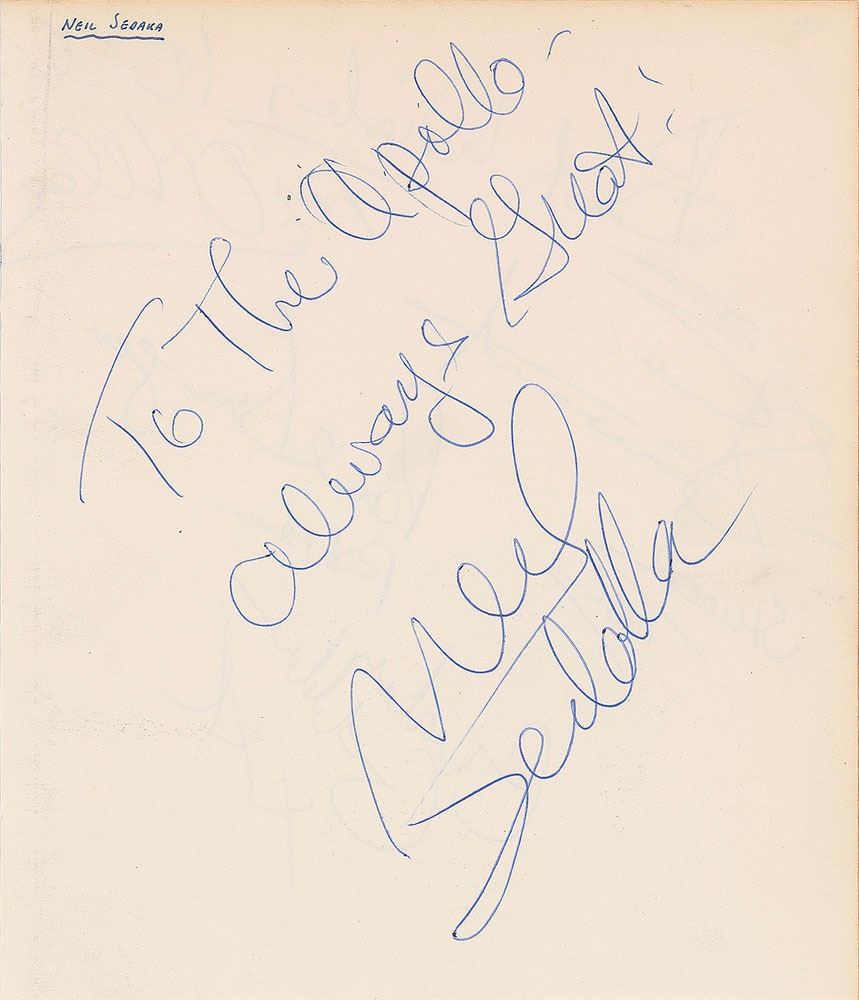 NEIL SEDAKA
To The Apollo -
always Great!
Neil
Sedaka